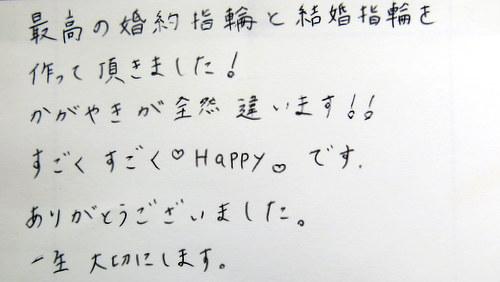 最高の婚約指輪と結婚指輪を
作って頂きました!
かがやきが全然違います!!
すごくすごく♡Happy♡です.
ありがとうございました。
一生大切にします。